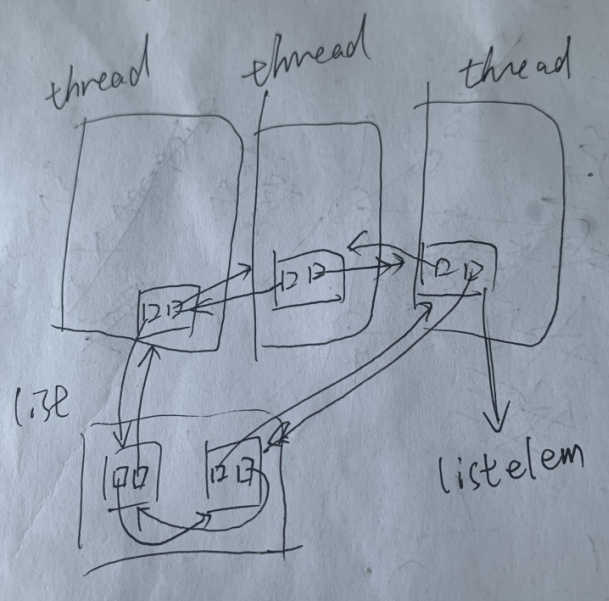 thread
thread
thread
list
listelem